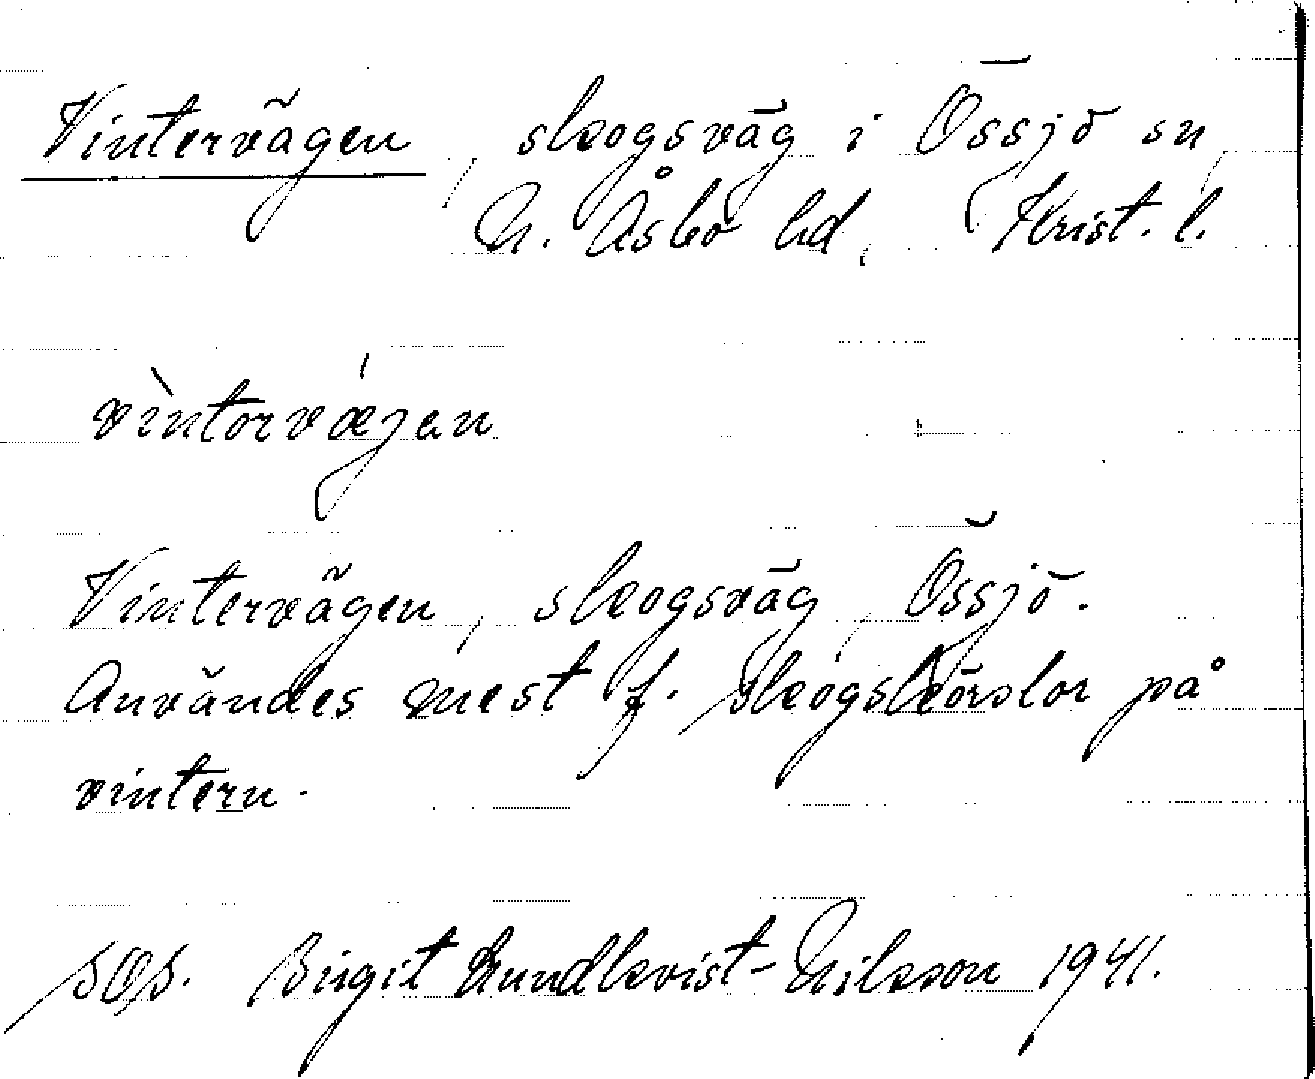 Vintervägen, skogsväg i Össjö sn,
N. Åsbo hd, Krist. l.
vìntorvǽjen
Vintervägen, skogsväg, Össjö.
Användes mest f. skogskörslor på
vintern.
Birgit Lundkvist-Nilsson 1941.